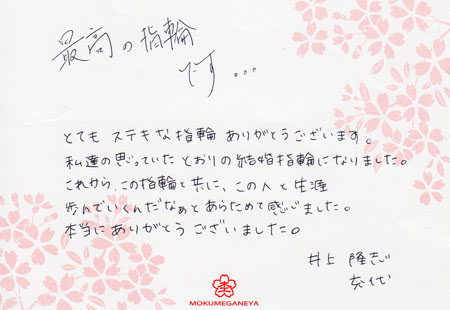 最高の指輪
です...
とても ステキな指輪 ありがとうございます。
私達の思っていたとおりの結婚指輪になりました。
これから、この指輪と共に、この人と生涯
歩んでいくんだなぁとあらためて感じました。
本当にありがとう ございました。
井上 隆志
MOKUMEGANEYA